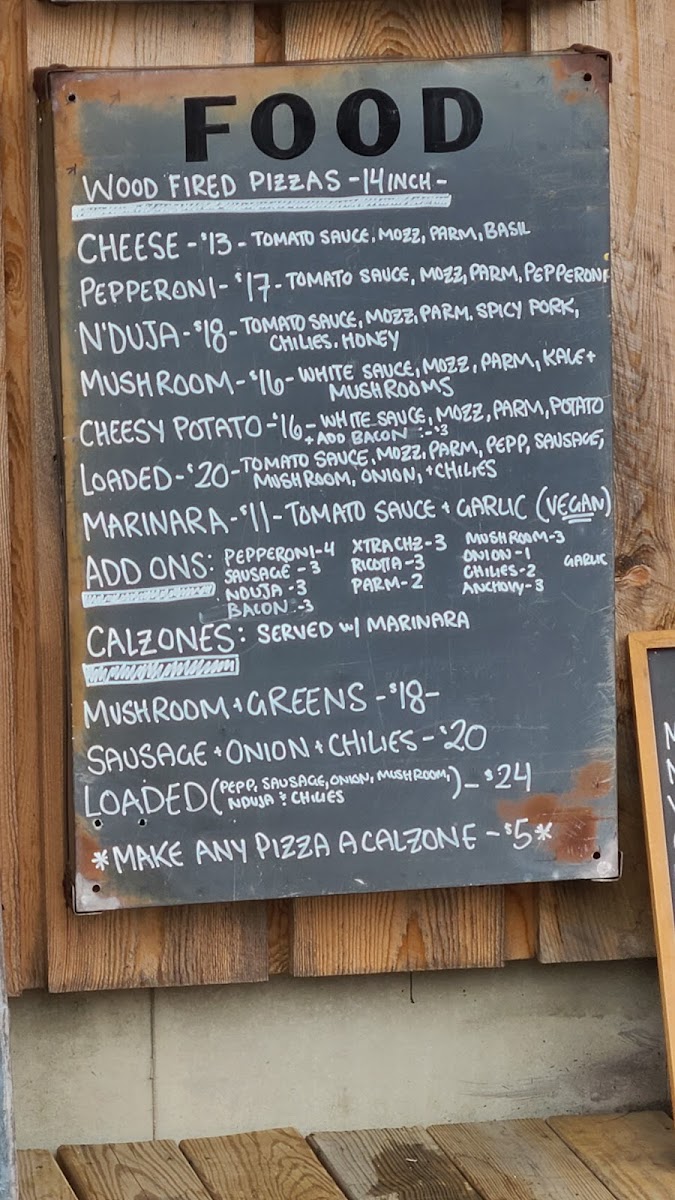 FOOD
WOOD FIRED PIZZAS -14 INCH-
CHEESE - $13 - TOMATO SAUCE, MOZZ, PARM, BASIL
PEPPERONI - $17 - TOMATO SAUCE, MOZZ, PARM, PEPPERONI
N'DUJA - $18 - TOMATO SAUCE, MOZZ, PARM, SPICY PORK,
CHILIES, HONEY
MUSHROOM - $16 - WHITE SAUCE, MOZZ, PARM, KALE +
MUSHROOMS
CHEESY POTATO - $16 - WHITE SAUCE, MOZZ, PARM, POTATO
+ ADD BACON - $3
LOADED - $20 - TOMATO SAUCE, MOZZ, PARM, PEPP, SAUSAGE,
MUSHROOM, ONION, + CHILIES
MARINARA - $11 - TOMATO SAUCE + GARLIC (VEGAN)
ADD ONS: PEPPERONI - 4 XTRA CHZ - 3 MUSHROOM - 3
SAUSAGE - 3 RICOTTA - 3 ONION - 1 GARLIC
NDUJA - 3 PARM - 2 CHILIES - 2
BACON - 3 ANCHOVY - 3
CALZONES: SERVED W/ MARINARA
MUSHROOM + GREENS - $18 -
SAUSAGE + ONION + CHILIES - $20
LOADED (PEPP, SAUSAGE, ONION, MUSHROOM,) - $24
NDUJA & CHILIES
*MAKE ANY PIZZA A CALZONE - $5*